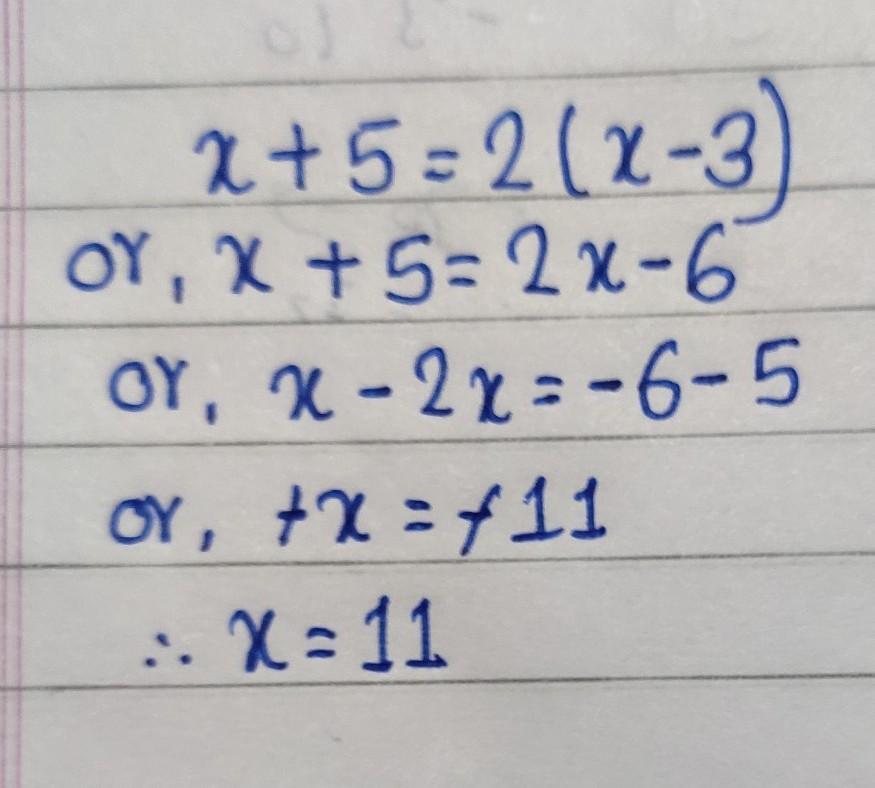 x + 5 = 2 ( x - 3 )
or, x + 5 = 2x - 6
or, x - 2x = -6 - 5
or, +x = +11
∴ x = 11